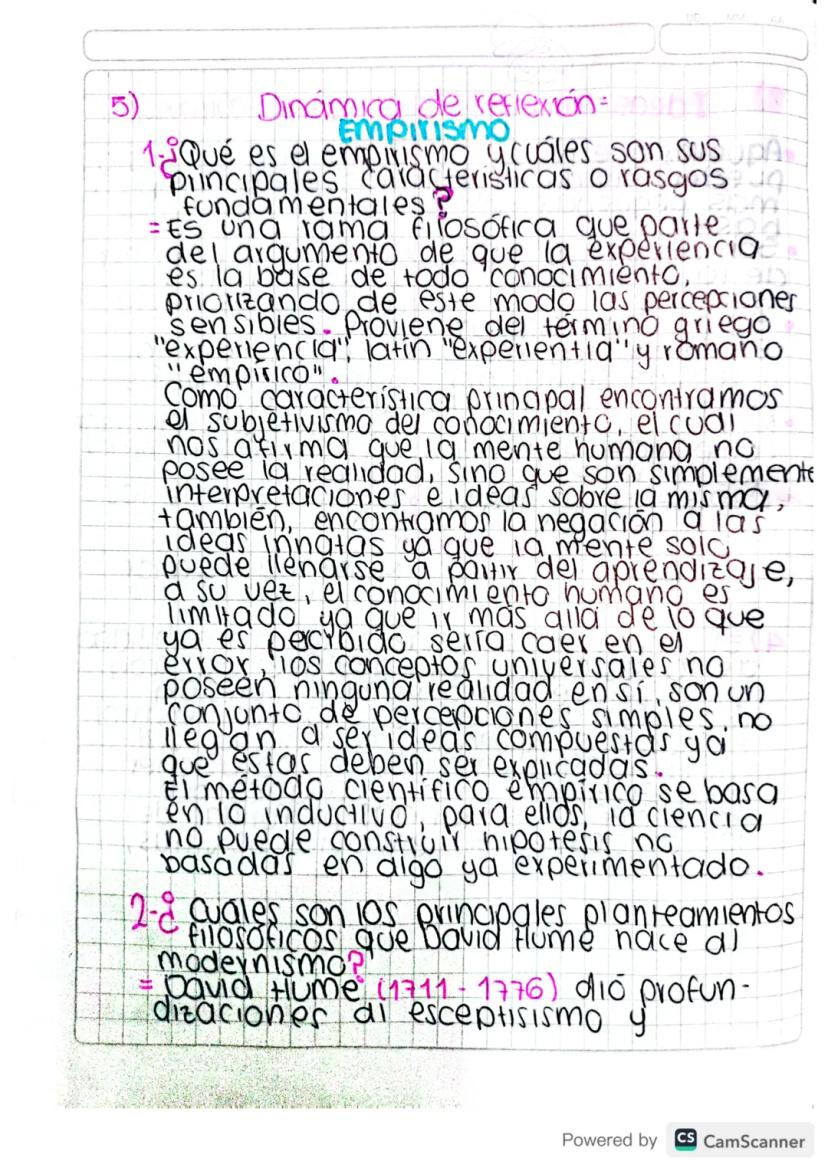 DD MM AA
5) Dinámica de reflexión:
EMPIRISMO
1-¿Qué es el empirismo y cuáles son sus
principales características o rasgos
fundamentales?
= Es una rama filosófica que parte
del argumento de que la experiencia
es la base de todo conocimiento,
priorizando de este modo las percepciones
sensibles. Proviene del término griego
"experiencia", latín "experientia" y romano
"empírico".
Como característica principal encontramos
el subjetivismo del conocimiento, el cual
nos afirma que la mente humana no
posee la realidad, sino que son simplemente
interpretaciones e ideas sobre la misma,
también, encontramos la negación a las
ideas innatas ya que la mente solo
puede llenarse a partir del aprendizaje,
a su vez, el conocimiento humano es
limitado ya que ir más allá de lo que
ya es percibido sería caer en el
error, los conceptos universales no
poseen ninguna realidad en sí, son un
conjunto de percepciones simples, no
llegan a ser ideas compuestas ya
que estas deben ser explicadas.
El método científico empírico se basa
en lo inductivo, para ellos, la ciencia
no puede construir hipótesis no
basadas en algo ya experimentado.
2-¿Cuáles son los principales planteamientos
filosóficos que David Hume hace al
modernismo?
= David Hume (1711 - 1776) dió profun-
dizaciones al esceptisismo y
Powered by CS CamScanner